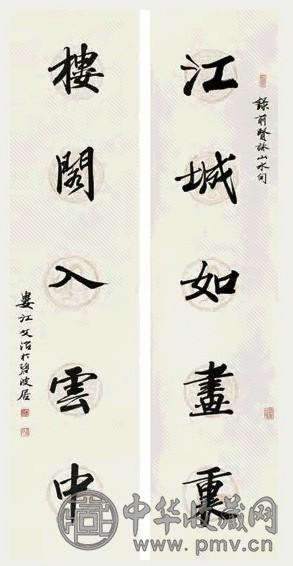 江城如畫裏
錄前賢詠山水句
樓閣入雲中
婁江文治於碧波居
中华收藏网
www.pmv.cn